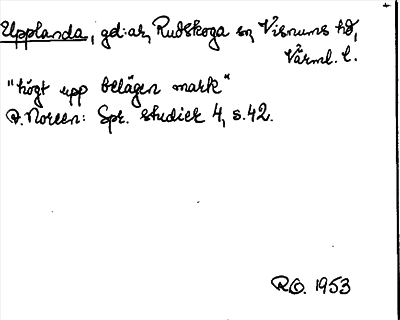 Upplanda, gd:ar, Rudskoga sn, Visnums hd,
Värml. l.
"högt upp belägen mark"
A. Noreen: Spr. studier 4, s. 42.
RO. 1953